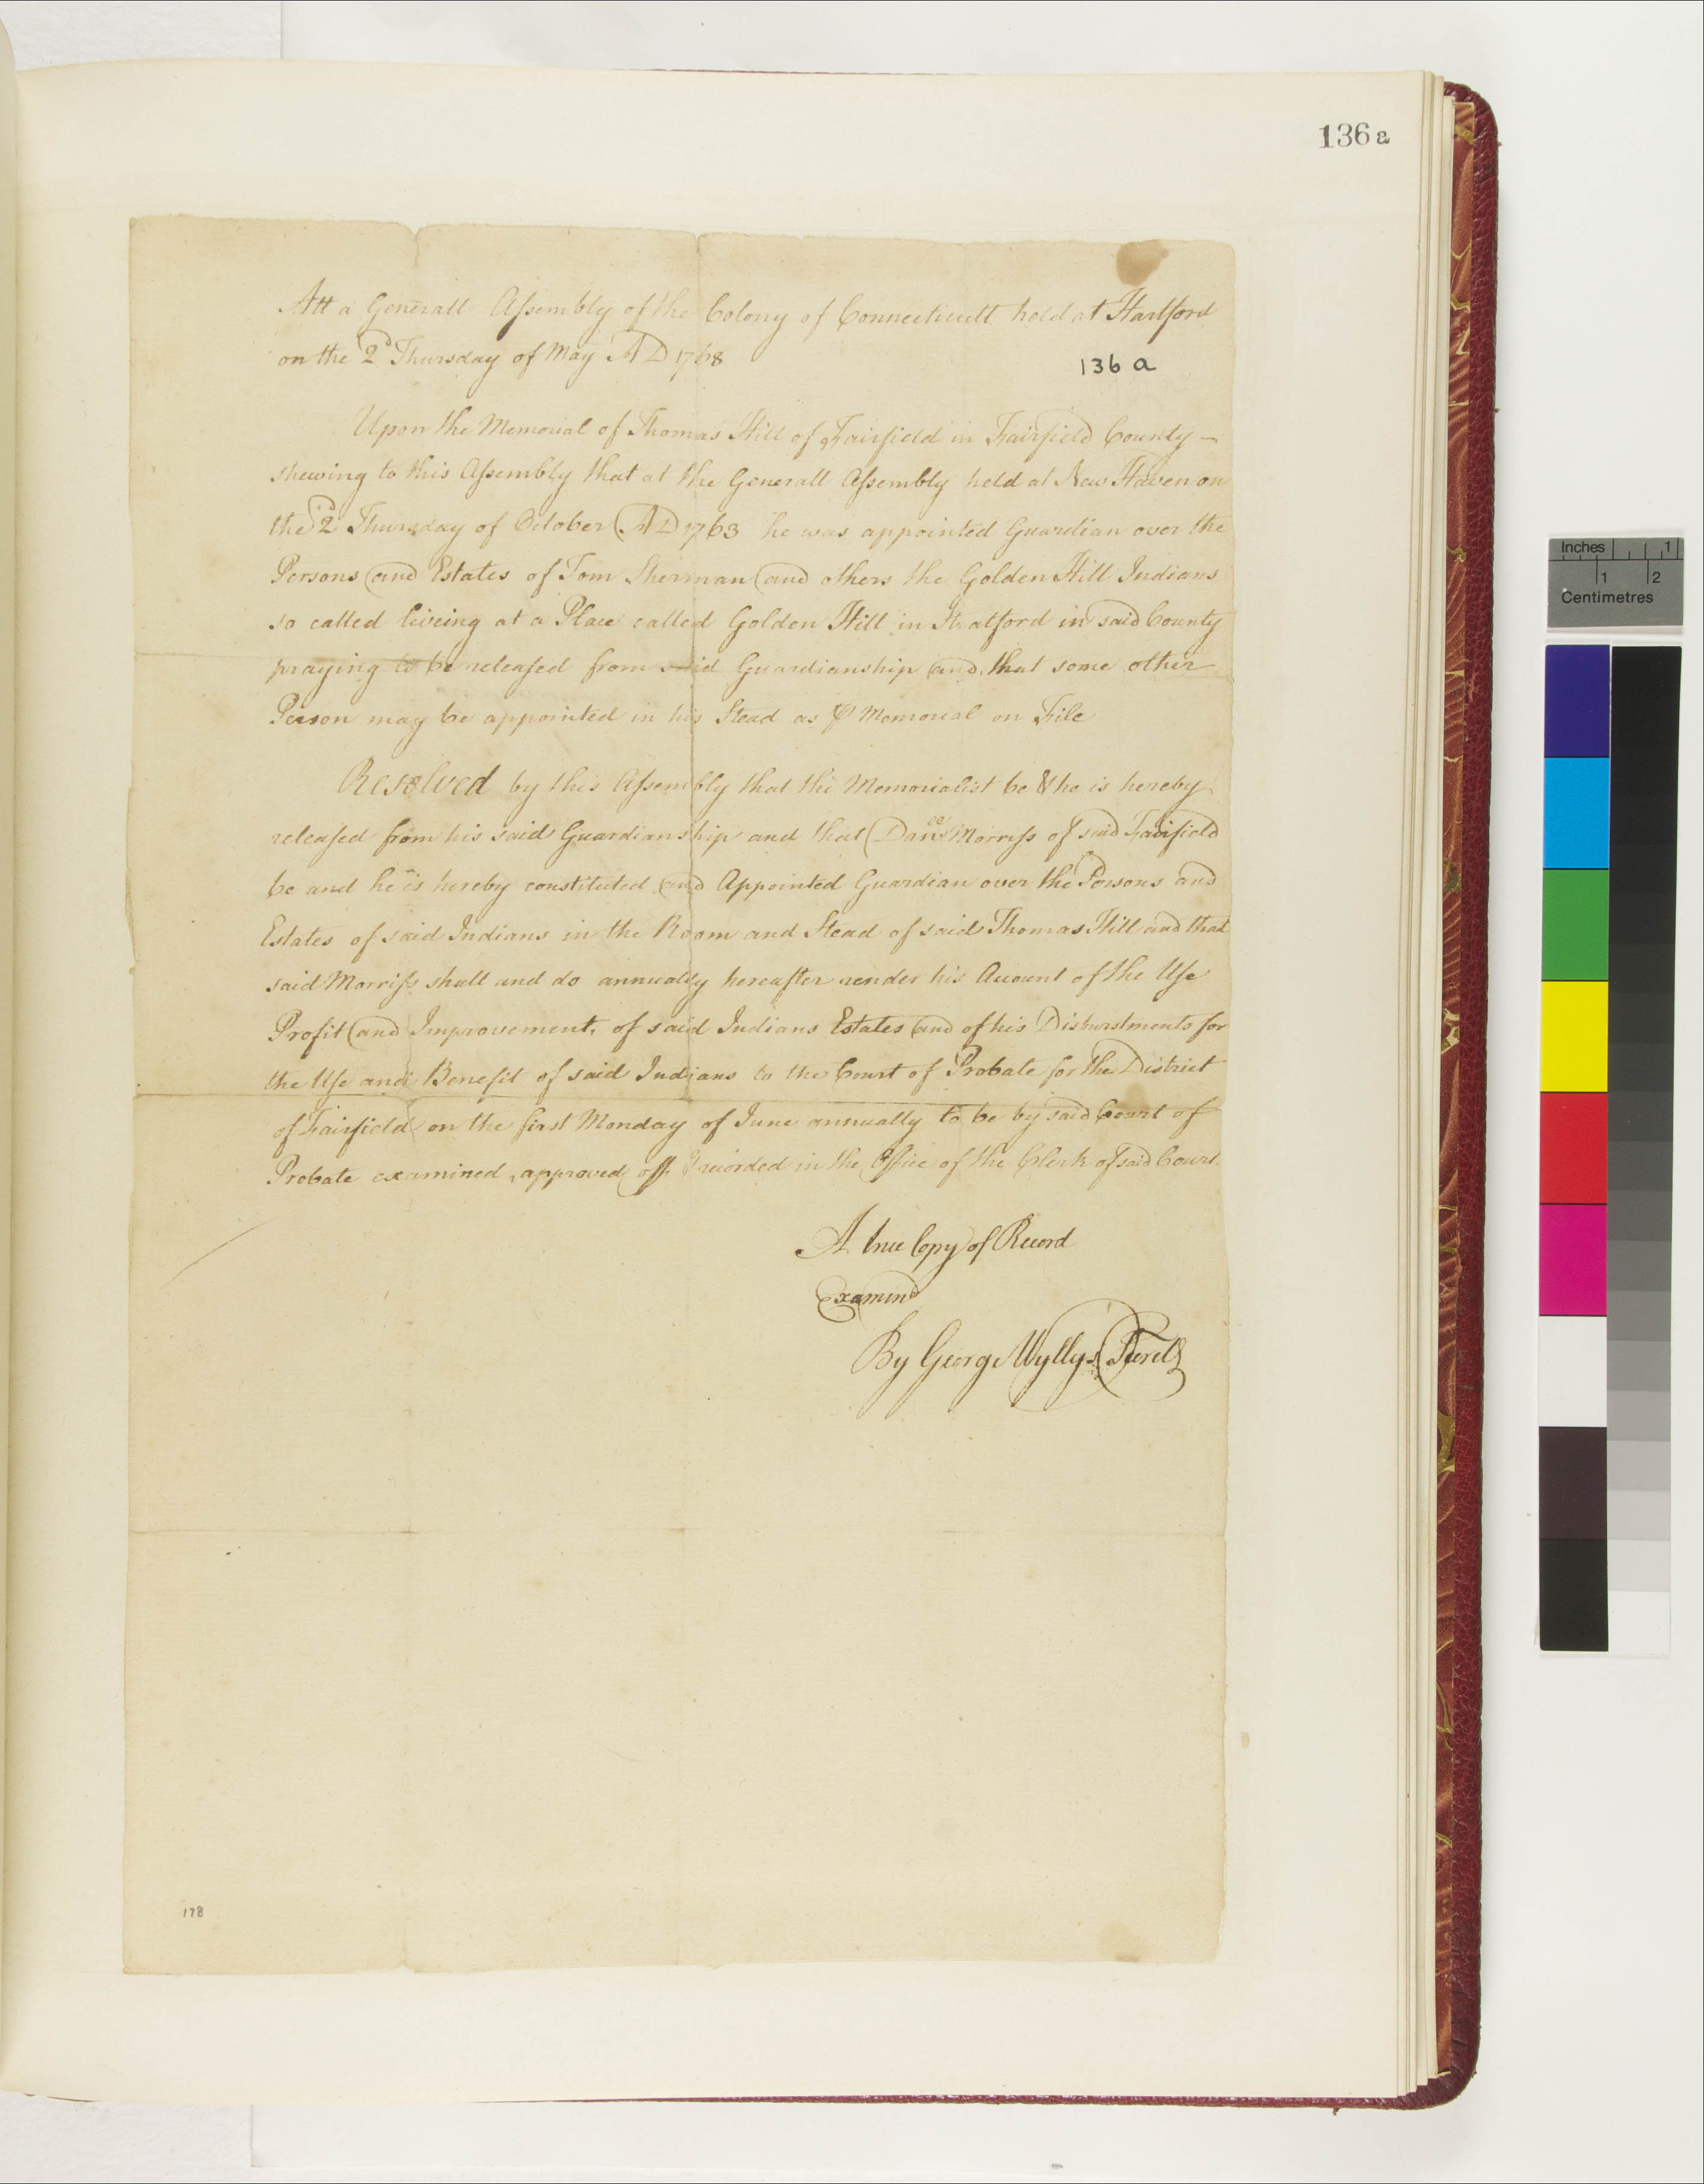 136 a
Att a Generall Assembly of the Colony of Connecticutt held at Hartford
on the 2d Thursday of May AD 1768
136 a
Upon the Memorial of Thomas Hill of Fairfield in Fairfield County –
shewing to this Assembly that at the Generall Assembly held at New Haven on
the 2d Thursday of October AD 1763 he was appointed Guardian over the
Persons and Estates of Tom Sherman and others the Golden Hill Indians
so called liveing at a Place called Golden Hill in Stratford in said County
praying to be released from said Guardianship and that some other
Person may be appointed in his Stead as ⅌ Memorial on File
Resolved by this Assembly that the Memorialist be & he is hereby
released from his said Guardianship and that Danll Morriss of said Fairfield
be and he is hereby constituted and Appointed Guardian over the Persons and
Estates of said Indians in the Room and Stead of said Thomas Hill and that
said Morriss shall and do annually hereafter render his Account of the Use
Profit and Improvement, of said Indians Estates and of his Disburstments for
the Use and Benefit of said Indians to the Court of Probate for the District
of Fairfield on the first Monday of June annually to be by said Court of
Probate examined, approved off & recorded in the Office of the Clerk of said Court.
A true Copy of Record
Examind
By George Wyllys Secret
178
Inches 1
1 2
Centimetres